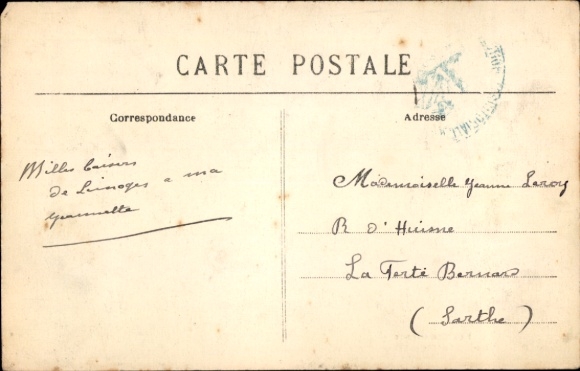 CARTE POSTALE
Correspondance
Milles baisers
de Limoges a ma
Jeannette
Adresse
Mademoiselle Jeanne Leroy
R d'Huisne
La Ferté Bernard
(Sarthe)